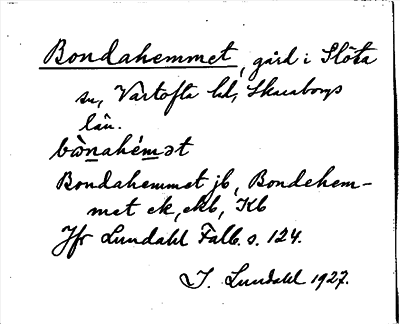 Bondahemmet, gård i Slöta
sn, Vartofta hd, Skaraborgs
län.
bònahémət
Bondahemmet jb, Bondehem-
met ek, ekb, Kb
Jfr Lundahl Falb. s. 124.
I. Lundahl 1927.